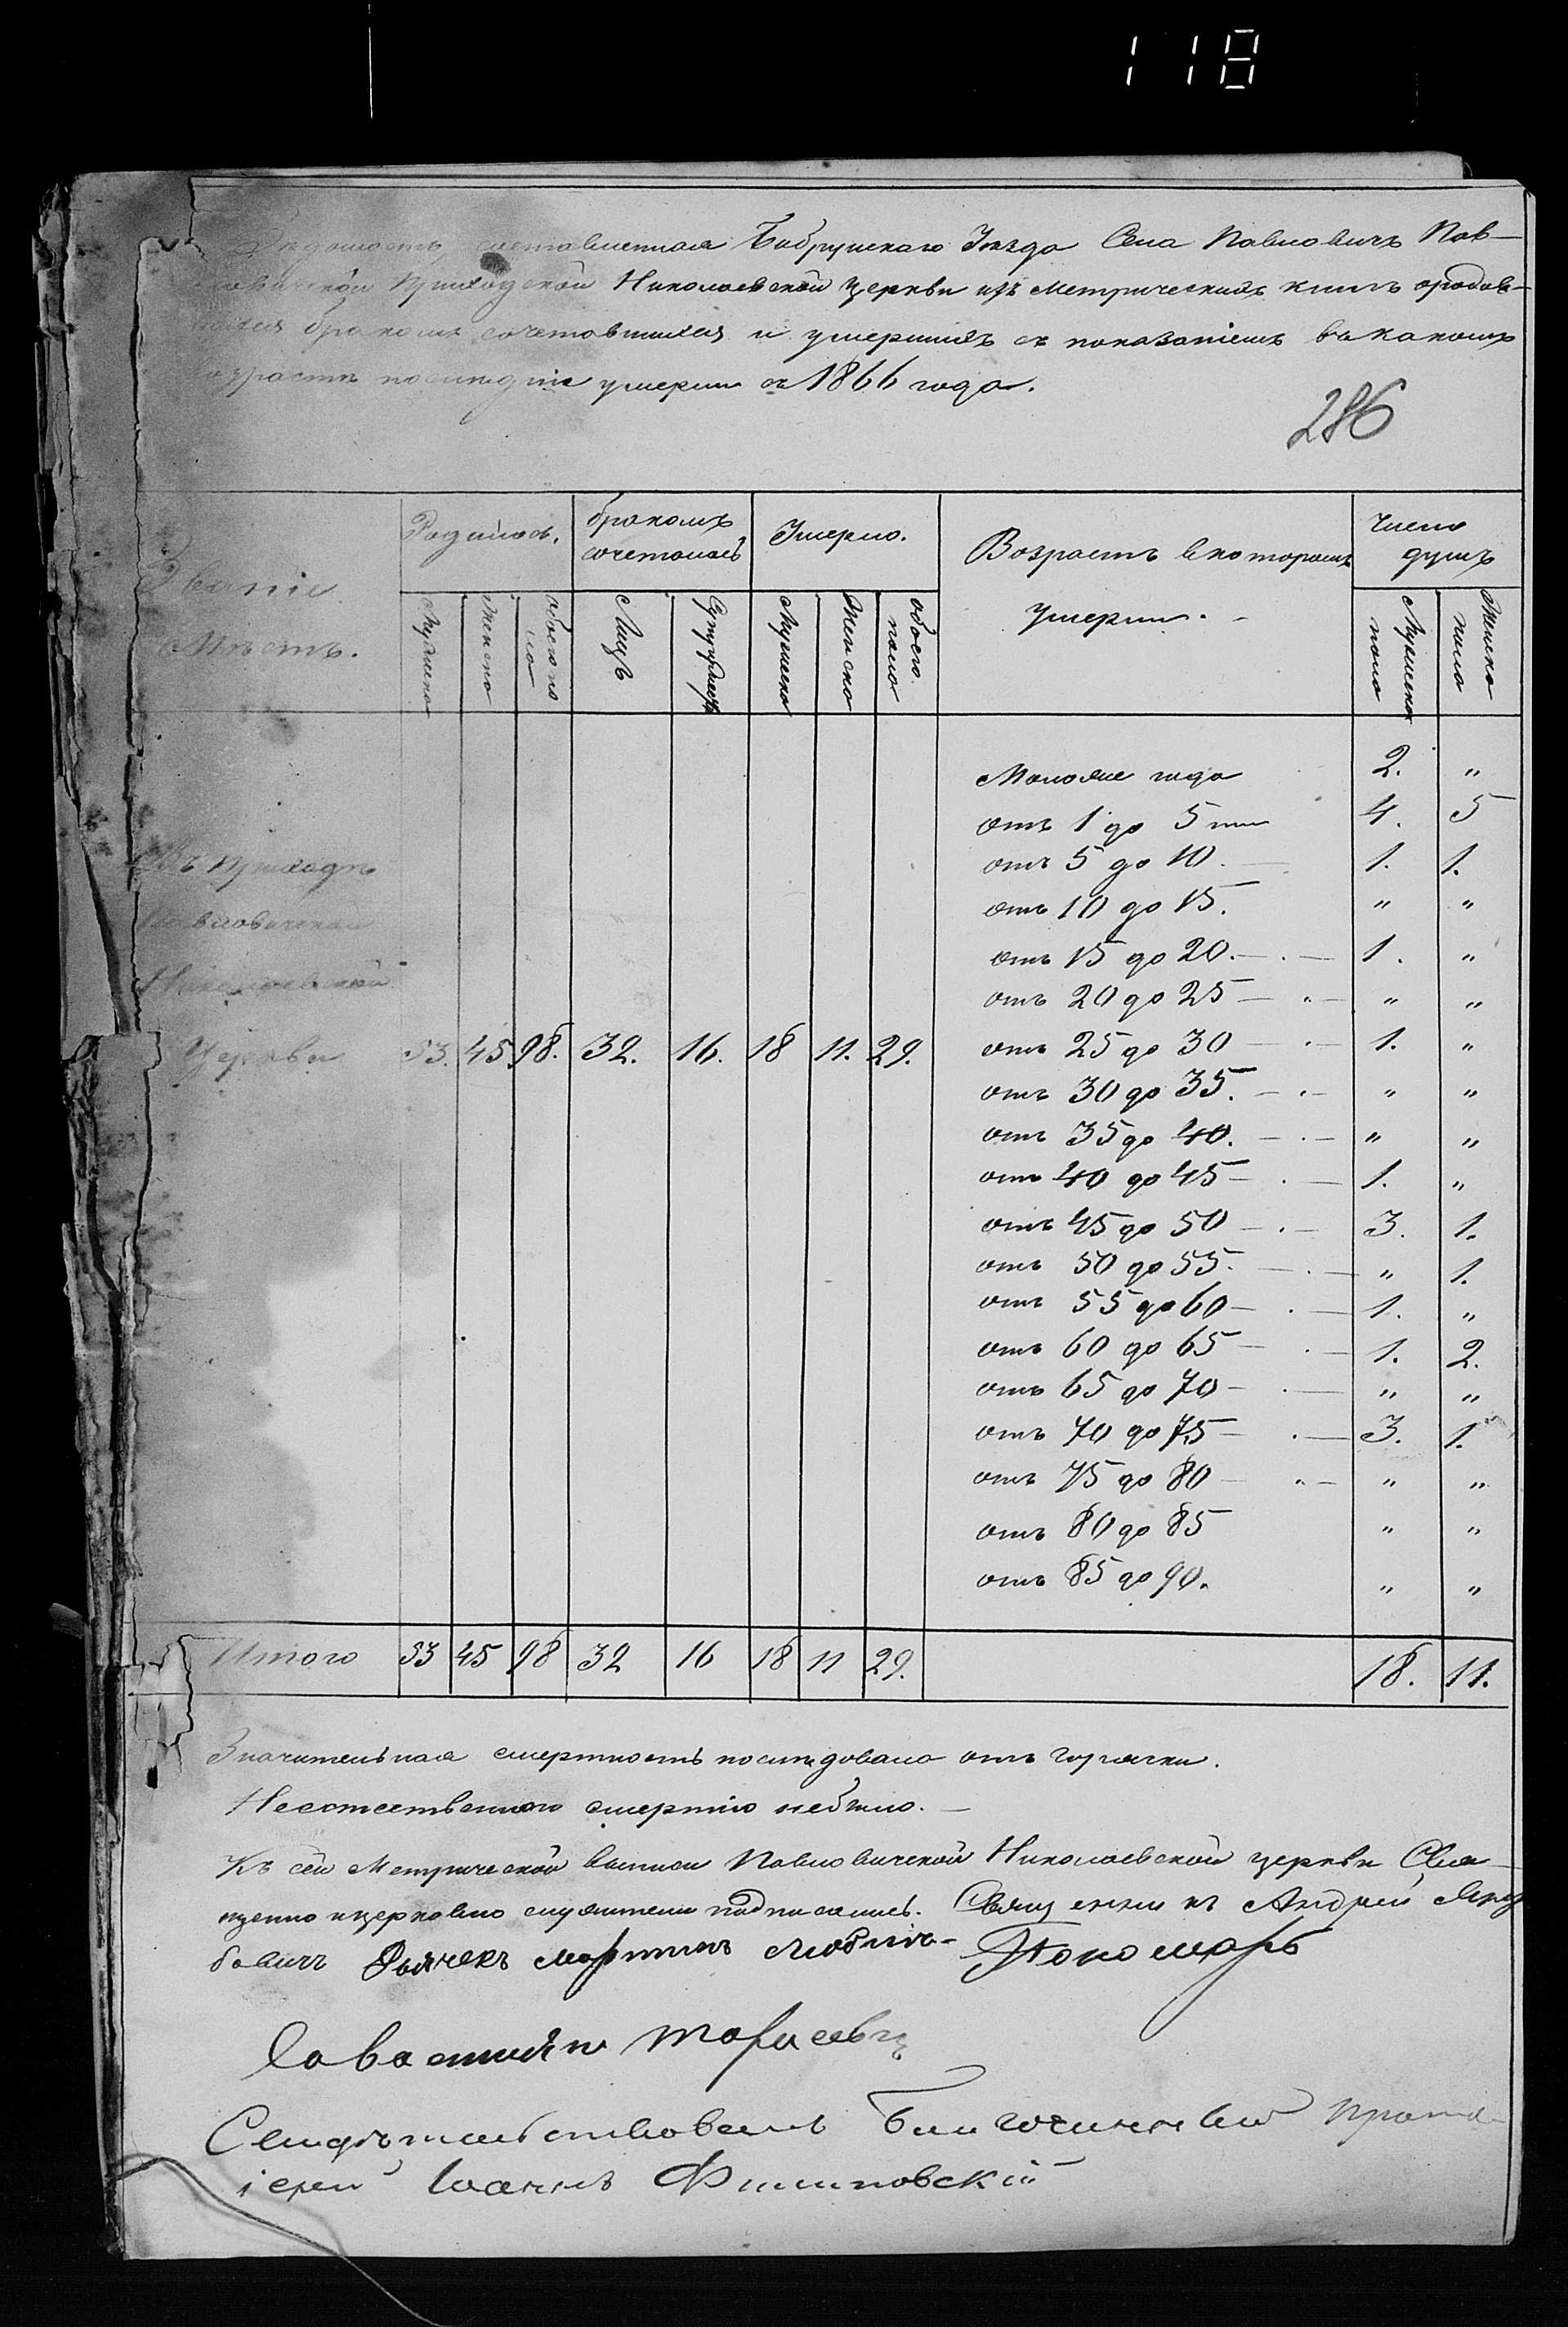 118
Вѣдомость, составленная Бобруйскаго Уѣзда Села Павловичъ Пав-
ловичской Приходской Николаевской Церкви изъ Метрическихъ книгъ ородив-
шихся бракомъ сочетавшихся и умершихъ съ показаніемъ въ какомъ
возрастѣ послѣдніе умерли за 1866 года.
286
Званіе Мѣстъ.
Родилось.
бракомъ сочеталось
Умерло.
Возрастъ вкоторомъ умерли.
Число душъ
Мужеска
Женска
обоего по ла
Лицъ
Супружествъ
Мужеска
Женска
обоего пола
Мужеска пола
Женска пола
Моложе года 2. "
отъ 1 до 5 лѣтъ 4. 5
отъ 5 до 10. 1. 1.
отъ 10 до 15. " "
отъ 15 до 20. 1. "
отъ 20 до 25 " "
отъ 25 до 30 1. "
отъ 30 до 35. " "
отъ 35 до 40. " "
отъ 40 до 45 1. "
отъ 45 до 50 3. 1.
отъ 50 до 55. " 1.
отъ 55 до 60 1. "
отъ 60 до 65 1. 2.
отъ 65 до 70 " "
отъ 70 до 75 3. 1.
отъ 75 до 80 " "
отъ 80 до 85 " "
отъ 85 до 90. " "
Въ Приходѣ
Павловичской
Николаевской
Церкви 53. 45. 98. 32. 16. 18 11. 29.
Итого 53 45 98 32 16 18 11 29. 18. 11.
Значительная смертность послѣдовала отъ горячки.
Неестественною смертію небыло.
Къ сей Метрической выписи Павловичской Николаевской церкви Свя-
щенно ицерковно служители подписались. Священникъ Андрей
бовичъ Дьячекъ Мартинъ Пономарь
Савастиянъ Тарасевич
Свидѣтельствовалъ Благочинный Прото-
іерей Іоаннъ Филиповскій